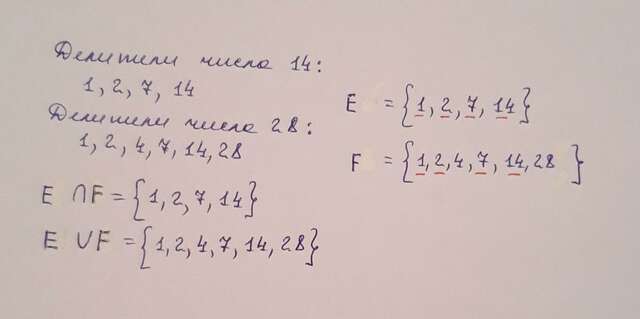 Делители числа 14:
1, 2, 7, 14
Делители числа 28:
1, 2, 4, 7, 14, 28
E ∩ F = {1, 2, 7, 14}
E ∪ F = {1, 2, 4, 7, 14, 28}
E = {1, 2, 7, 14}
F = {1, 2, 4, 7, 14, 28}